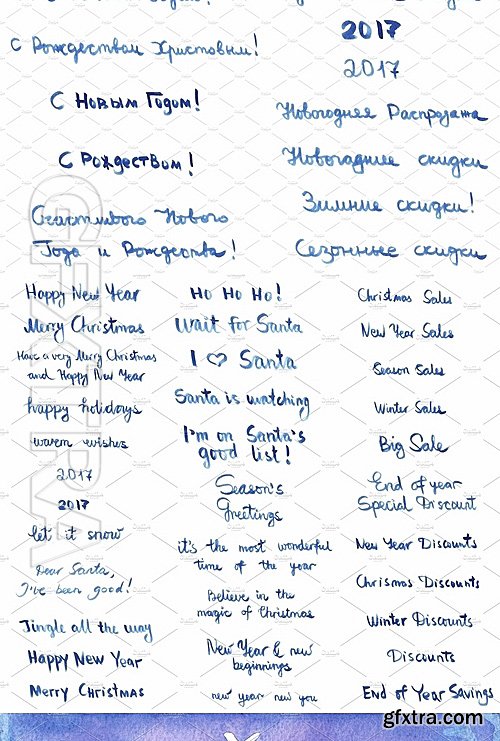 С Рождеством Христовым!
С Новым Годом!
С Рождеством!
Счастливого Нового
Года и Рождества!
2017
2017
Новогодняя Распродажа
Новогодние скидки
Зимние скидки!
Сезонные скидки
Happy New Year
Merry Christmas
Have a very Merry Christmas
and Happy New Year
happy holidays
warm wishes
2017
2017
let it snow
Dear Santa,
I've been good!
Jingle all the way
Happy New Year
Merry Christmas
Ho Ho Ho!
Wait for Santa
I ♡ Santa
Santa is watching
I'm on Santa's
good list!
Season's
Greetings
it's the most wonderful
time of the year
Believe in the
magic of Christmas
New Year & new
beginnings
new year new you
Christmas Sales
New Year Sales
Season Sales
Winter Sales
Big Sale
End of year
Special Discount
New Year Discounts
Chrismas Discounts
Winter Discounts
Discounts
End of Year Savings
GFXTRA
gfxtra.com